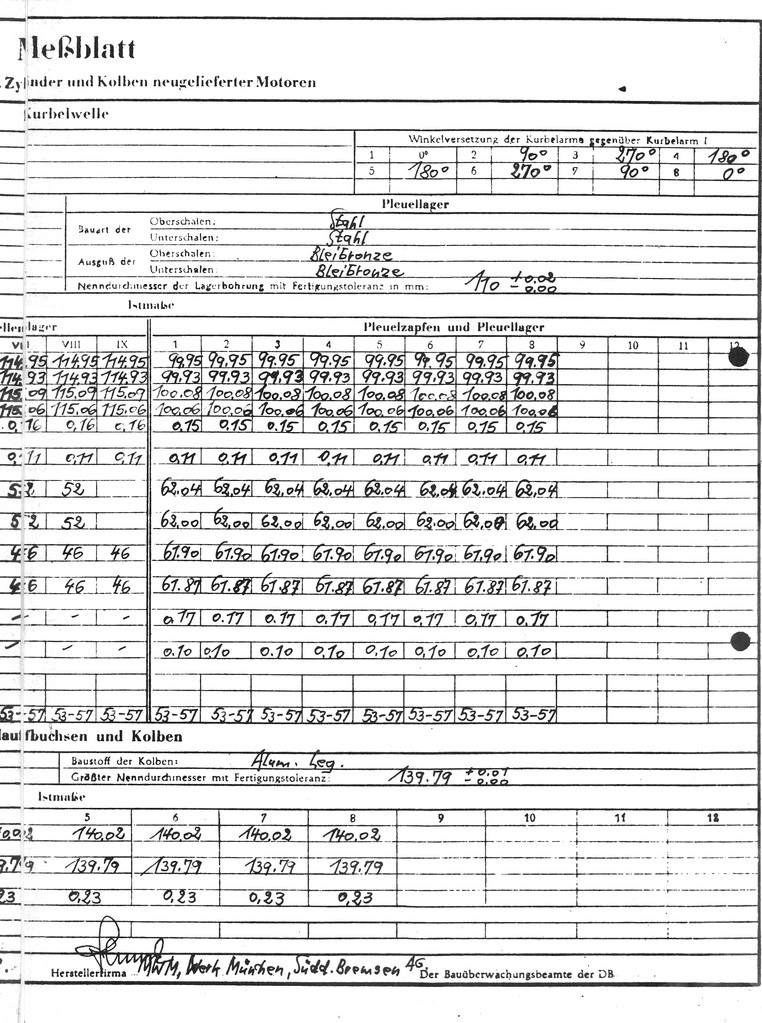 Meßblatt
Zylinder und Kolben neugelieferter Motoren
Kurbelwelle
Winkelversetzung der Kurbelarme gegenüber Kurbelarm I
1 0° 2 90° 3 270° 4 180°
5 180° 6 270° 7 90° 8 0°
Pleuellager
Bauart der Oberschalen: Stahl
Unterschalen: Stahl
Ausguß der Oberschalen: Bleibronze
Unterschalen: Bleibronze
Nenndurchmesser der Lagerbohrung mit Fertigungstoleranz in mm: 110 +0.02 -0.00
Istmaße
ellenlager Pleuelzapfen und Pleuellager
VII VIII IX 1 2 3 4 5 6 7 8 9 10 11 12
114.95 114.95 114.95 99.95 99.95 99.95 99.95 99.95 99.95 99.95 99.95
114.93 114.93 114.93 99.93 99.93 99.93 99.93 99.93 99.93 99.93 99.93
115.09 115.09 115.09 100.08 100.08 100.08 100.08 100.08 100.08 100.08 100.08
115.06 115.06 115.06 100.06 100.06 100.06 100.06 100.06 100.06 100.06 100.06
0,16 0,16 0,16 0.15 0.15 0.15 0.15 0.15 0.15 0.15 0.15
0,11 0,11 0,11 0,11 0,11 0,11 0,11 0,11 0,11 0,11 0,11
52 52 62.04 62,04 62,04 62,04 62.04 62,04 62.04 62,04
52 52 62,00 62,00 62.00 62,00 62,00 62.00 62,00 62.00
46 46 46 61.90 61.90 61.90 61.90 61.90 61.90 61.90 61.90
46 46 46 61.87 61.87 61.87 61.87 61.87 61.87 61.87 61.87
- - - 0,17 0.17 0.17 0.17 0,17 0,17 0.17 0,17
- - - 0.10 0,10 0.10 0,10 0,10 0,10 0,10 0,10
53-57 53-57 53-57 53-57 53-57 53-57 53-57 53-57 53-57 53-57 53-57
laufbuchsen und Kolben
Baustoff der Kolben: Alum. Leg.
Größter Nenndurchmesser mit Fertigungstoleranz: 139.79 +0.01 -0.00
Istmaße
5 6 7 8 9 10 11 12
0,02 140.02 140.02 140.02 140.02
9.79 139.79 139.79 139.79 139.79
23 0,23 0,23 0,23 0,23
Herstellerfirma MWM, Werk München, Südd. Bremsen AG Der Bauüberwachungsbeamte der DB